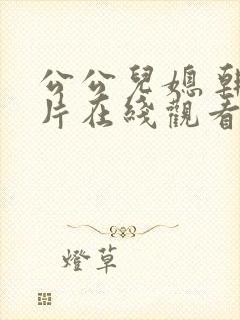 公公兒媳朝
片在綫觀看
燈草